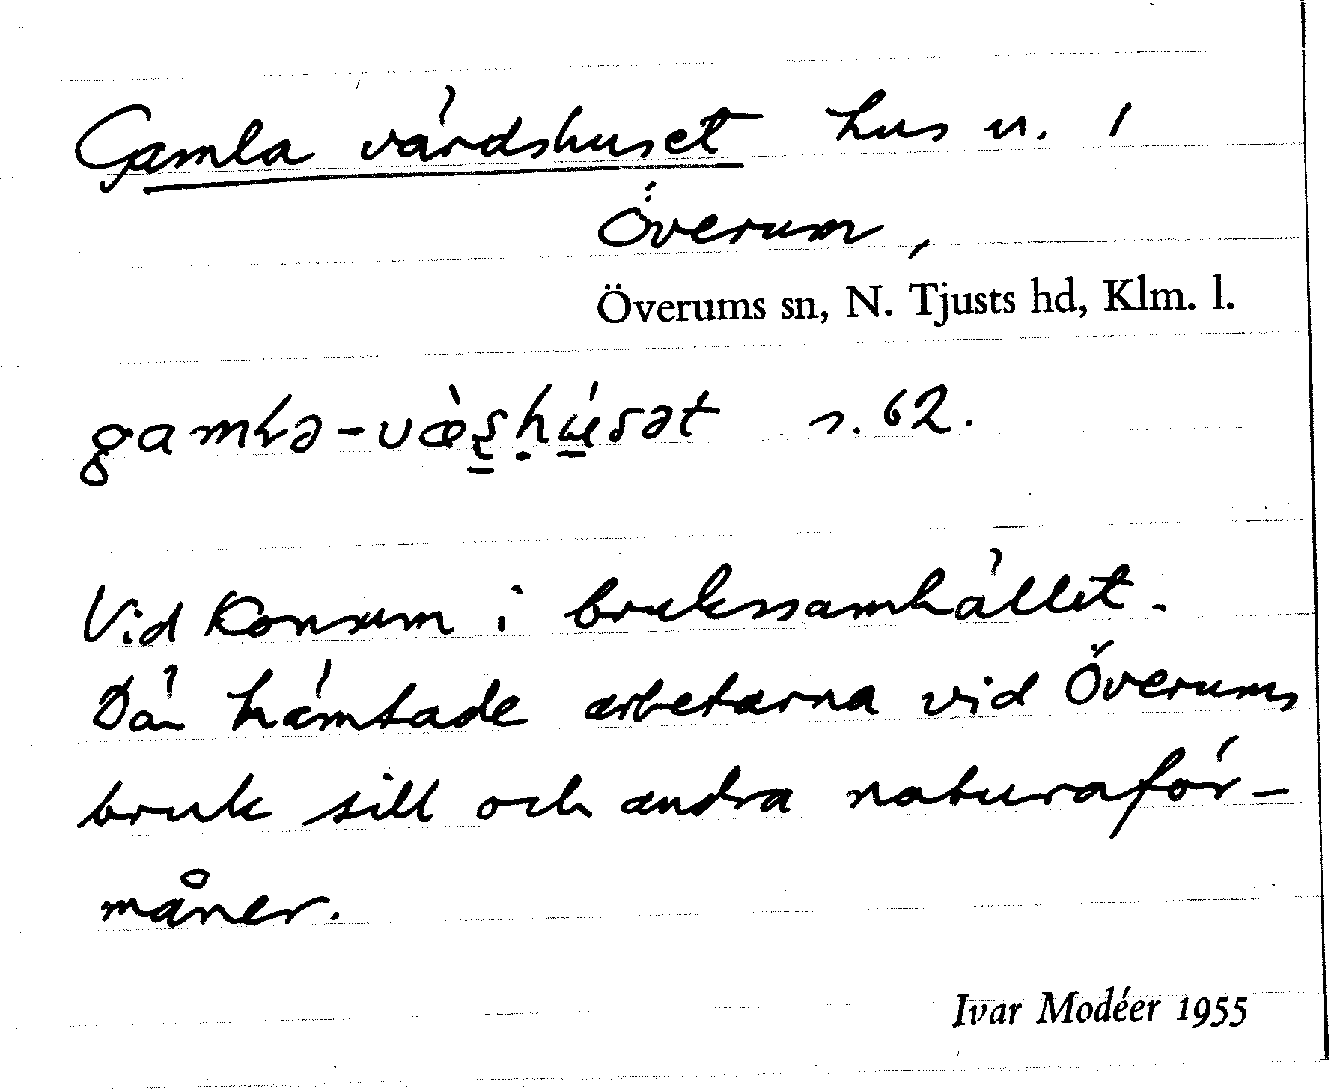 Gamla värdshuset hus n. 1
Överum,
Överums sn, N. Tjusts hd, Klm. l.
s. 62.
Vid Konsum i brukssamhället.
Där hämtade arbetarna vid Överums
bruk sill och andra naturaför-
måner.
Ivar Modéer 1955